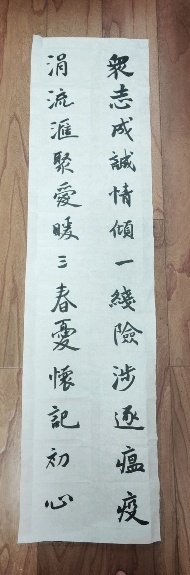 衆志成誠情傾一綫險涉逐瘟疫
涓流滙聚愛暖三春憂懷記初心